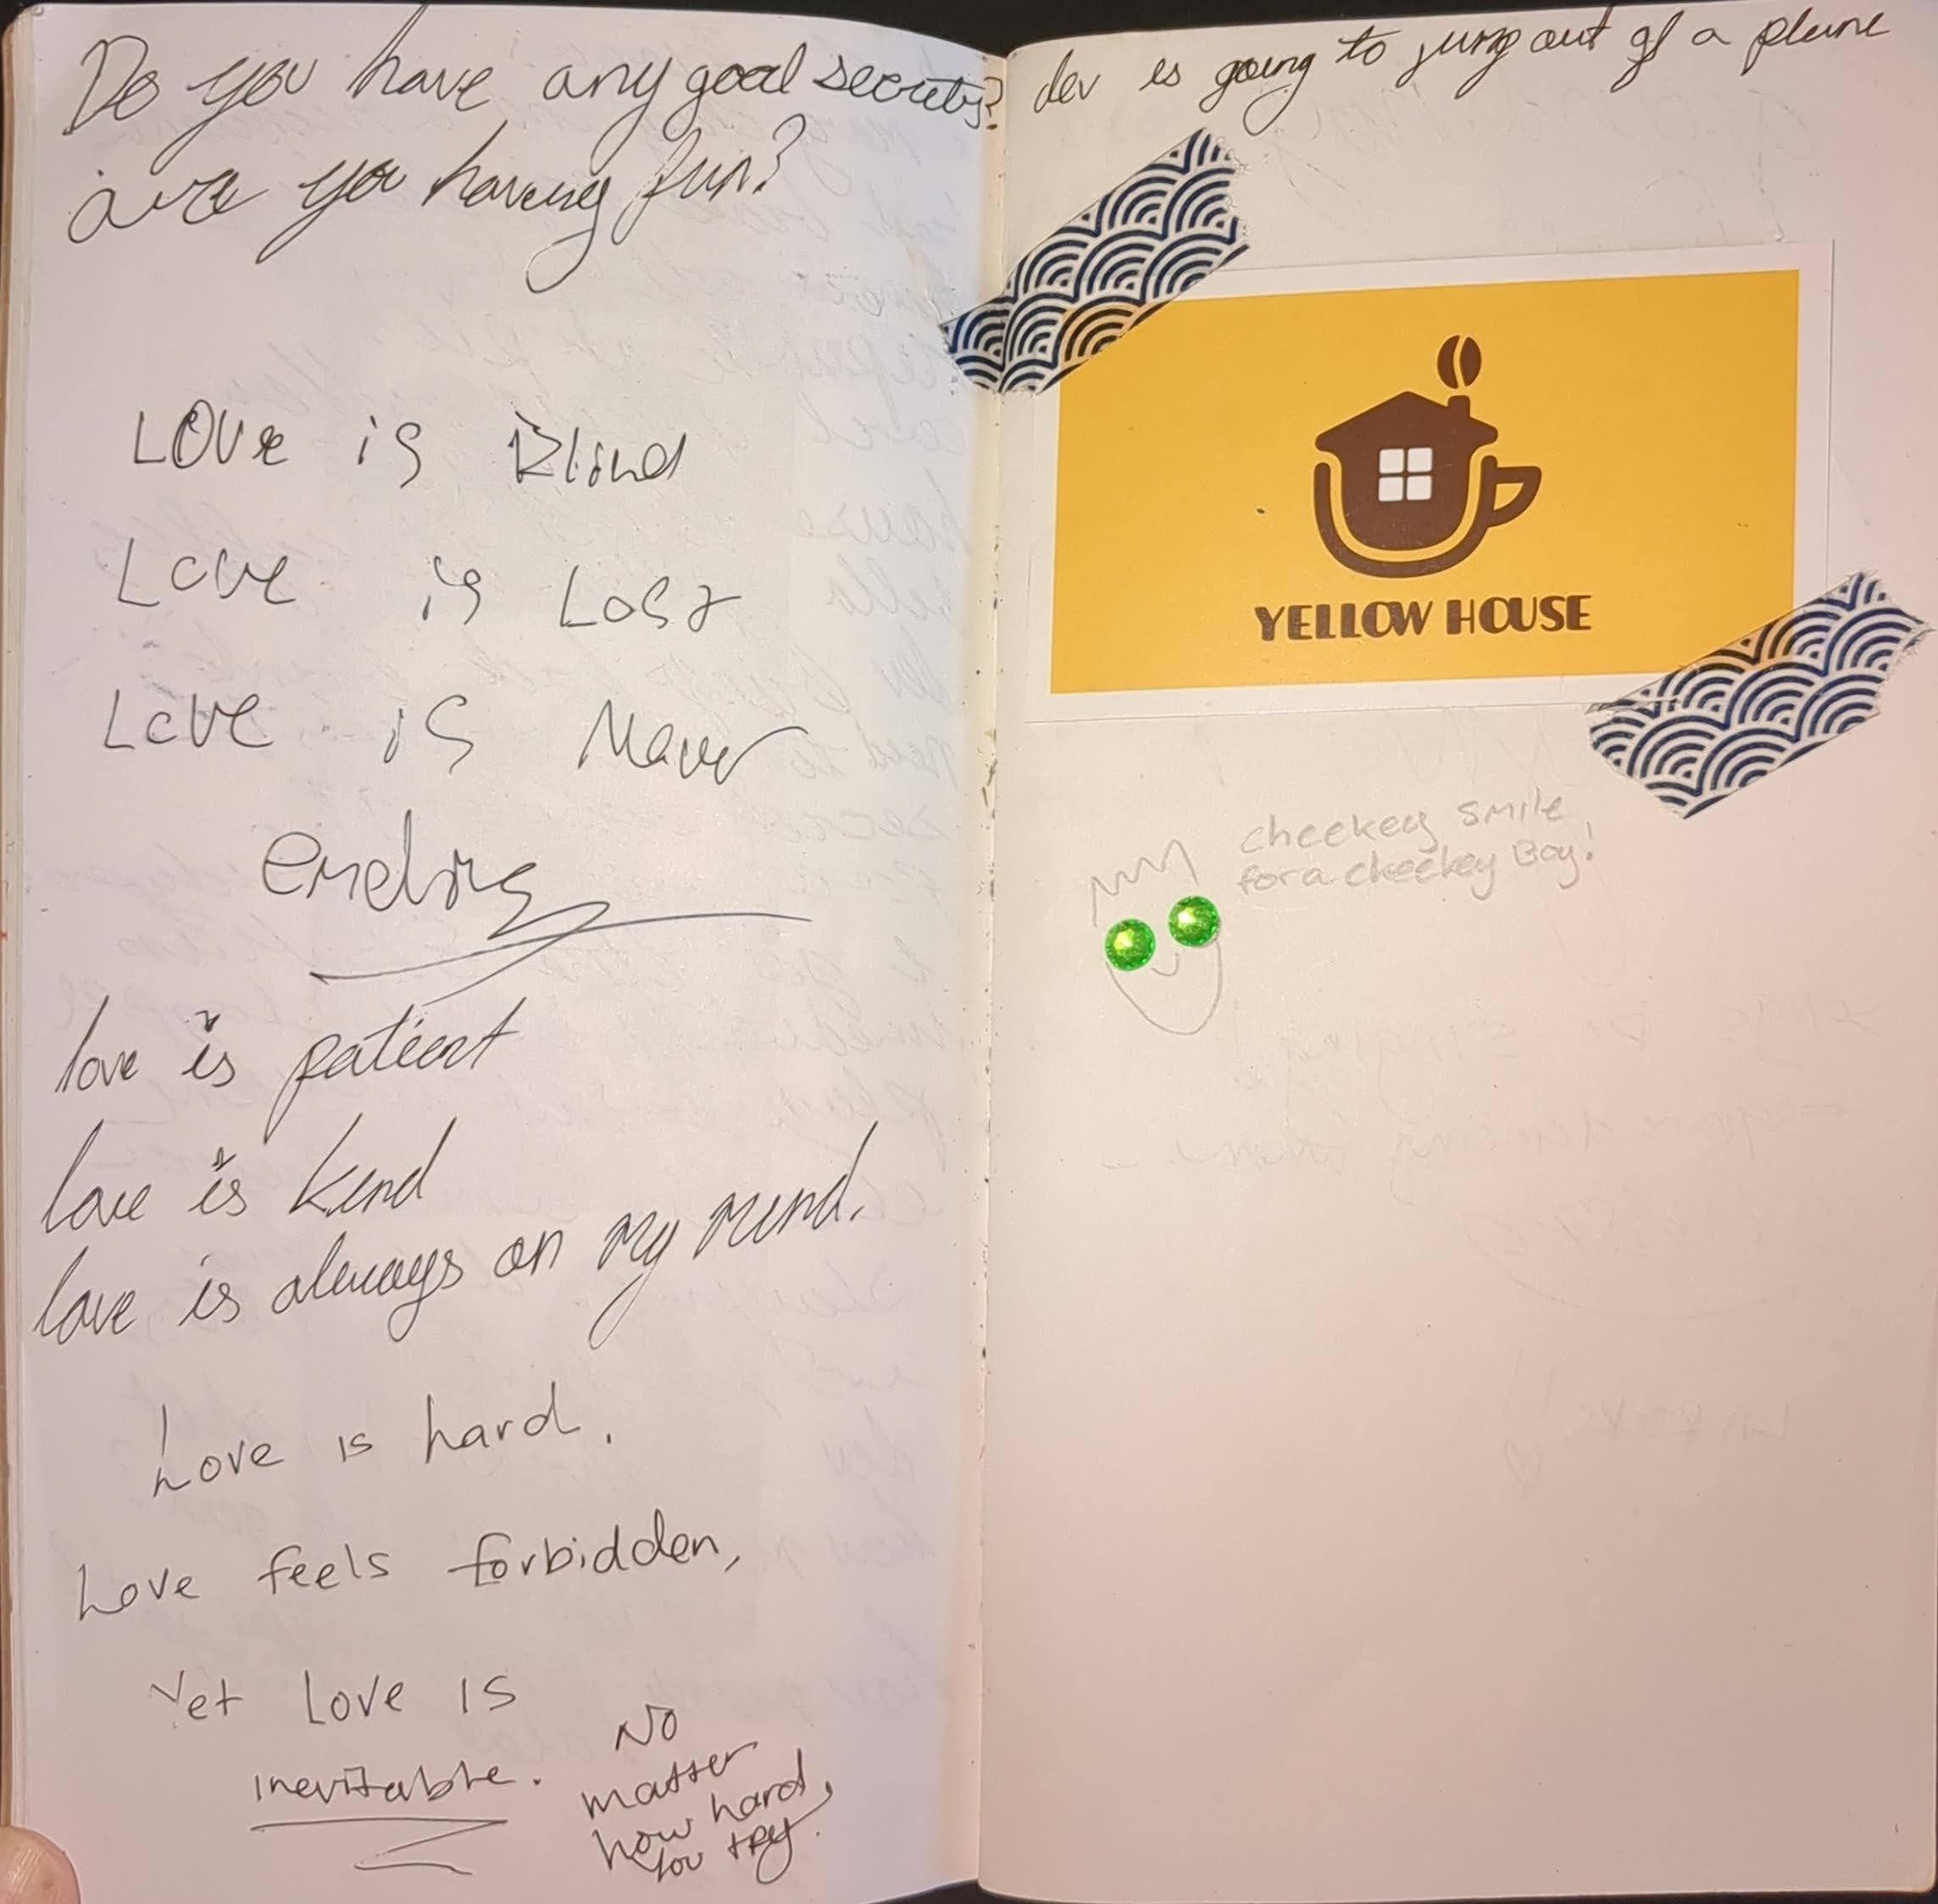 Do you have any good secrets?
are you having fun?
LOVe is Blind
Love is Lost
Love is Never
ending
love is patient
love is kind
love is always on my mind.
Love is hard.
Love feels forbidden,
Yet Love is
inevitable.
No
matter
how hard
you try.
dev is going to jump out of a plane
YELLOW HOUSE
cheekey smile
for a cheekey Boy!